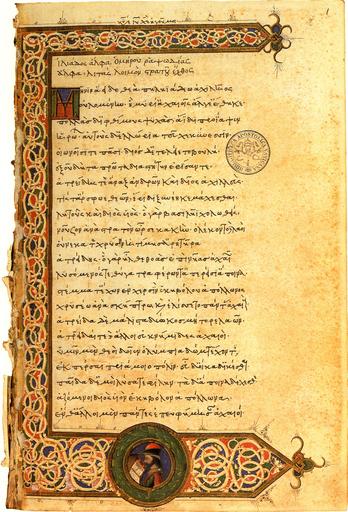 ἰλιάδος ἄλφα ὁμήρου ῥαψωδίας
ἄλφα λιτὰς λοιμὸν στρατῷ ἔχθος
Μῆνιν ἄειδε θεὰ πηληιάδεω ἀχιλῆος
οὐλομένην ἣ μυρί' ἀχαιοῖς ἄλγε' ἔθηκε
πολλὰς δ' ἰφθίμους ψυχὰς ἄϊδι προΐαψεν
ἡρώων αὐτοὺς δὲ ἑλώρια τεῦχε κύνεσσιν
οἰωνοῖσί τε πᾶσι διὸς δ' ἐτελείετο βουλή
ἐξ οὗ δὴ τὰ πρῶτα διαστήτην ἐρίσαντε
ἀτρείδης τε ἄναξ ἀνδρῶν καὶ δῖος ἀχιλλεύς
τίς τ' ἄρ σφωε θεῶν ἔριδι ξυνέηκε μάχεσθαι
λητοῦς καὶ διὸς υἱός ὁ γὰρ βασιλῆι χολωθείς
νοῦσον ἀνὰ στρατὸν ὦρσε κακήν ὀλέκοντο δὲ λαοί
οὕνεκα τὸν χρύσην ἠτίμησ' ἀρητῆρα
ἀτρείδης ὁ γὰρ ἦλθε θοὰς ἐπὶ νῆας ἀχαιῶν
λυσόμενός τε θύγατρα φέρων τ' ἀπερείσι' ἄποινα
στέμματα τ' ἔχων ἐν χερσὶν ἑκηβόλου ἀπόλλωνος
χρυσέω ἀνὰ σκήπτρω καὶ ἐλίσσετο πάντας ἀχαιούς
ἀτρείδα δὲ μάλιστα δύω κοσμήτορε λαῶν
ἀτρεῖδαί τε καὶ ἄλλοι ἐϋκνήμιδες ἀχαιοί
ὑμῖν μὲν θεοὶ δοῖεν ὀλύμπια δώματ' ἔχοντες
ἐκπέρσαι πριάμοιο πόλιν εὖ δ' οἴκαδ' ἱκέσθαι
παῖδα δέ μοι λύσατε φίλην τὰ δ' ἄποινα δέχεσθε
ἁζόμενοι διὸς υἱὸν ἑκηβόλον ἀπόλλωνα
ἔνθ' ἄλλοι μὲν πάντες ἐπευφήμησαν ἀχαιοί